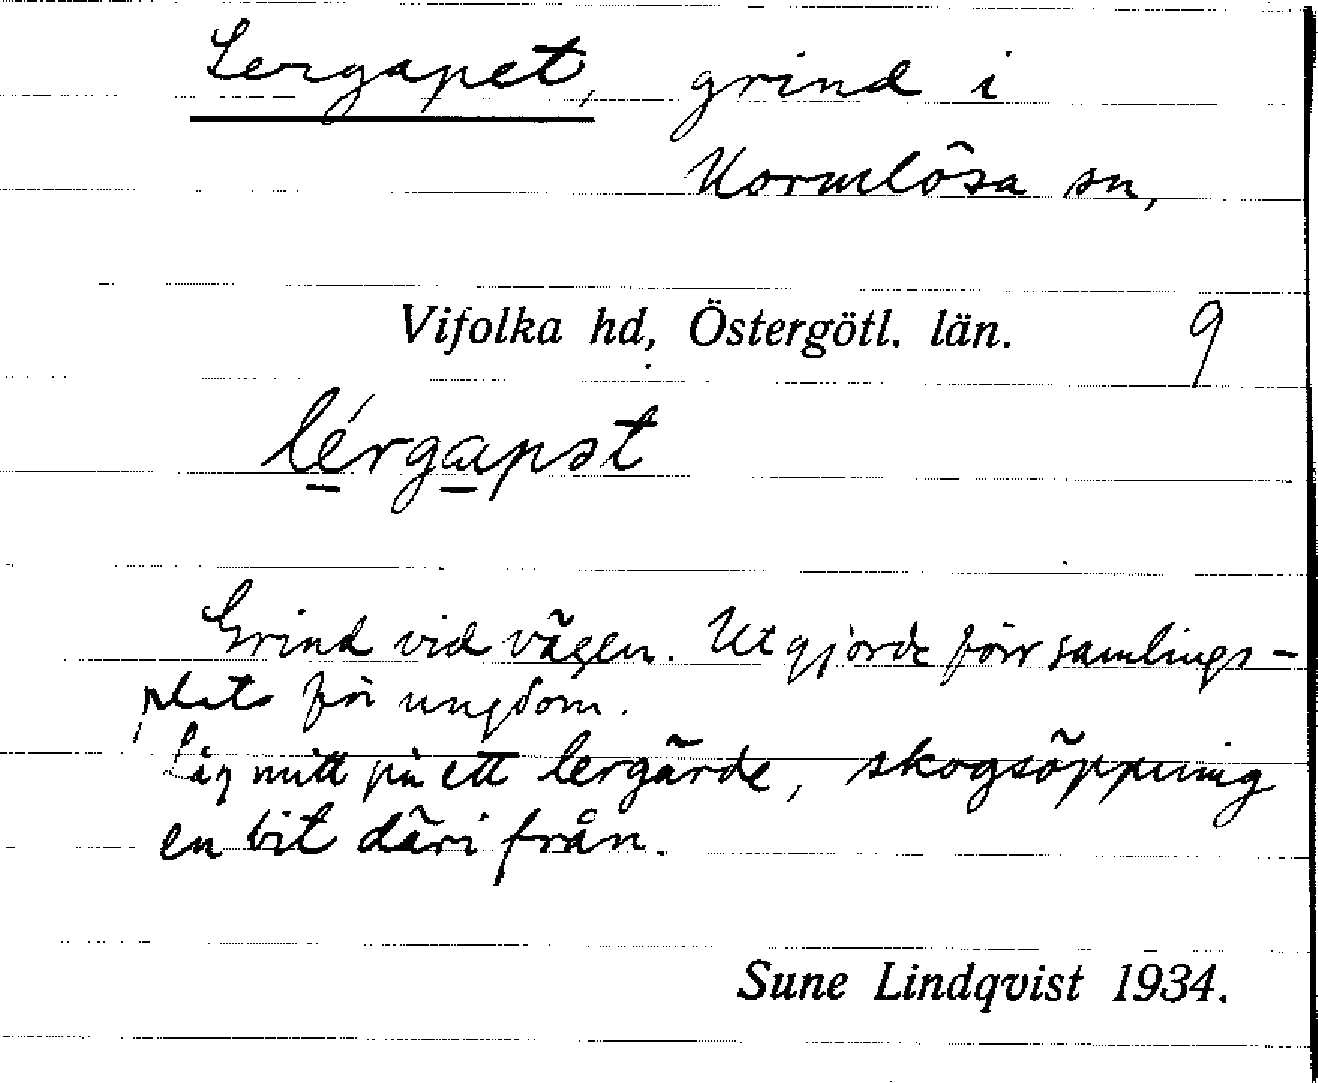 Lergapet, grind i
Normlösa sn,
Vifolka hd, Östergötl. län. 9
lérgapət
Grind vid vägen. Utgjorde förr samlings-
plats för ungdom.
Låg mitt på ett lergärde, skogsöppning
en bit därifrån.
Sune Lindqvist 1934.